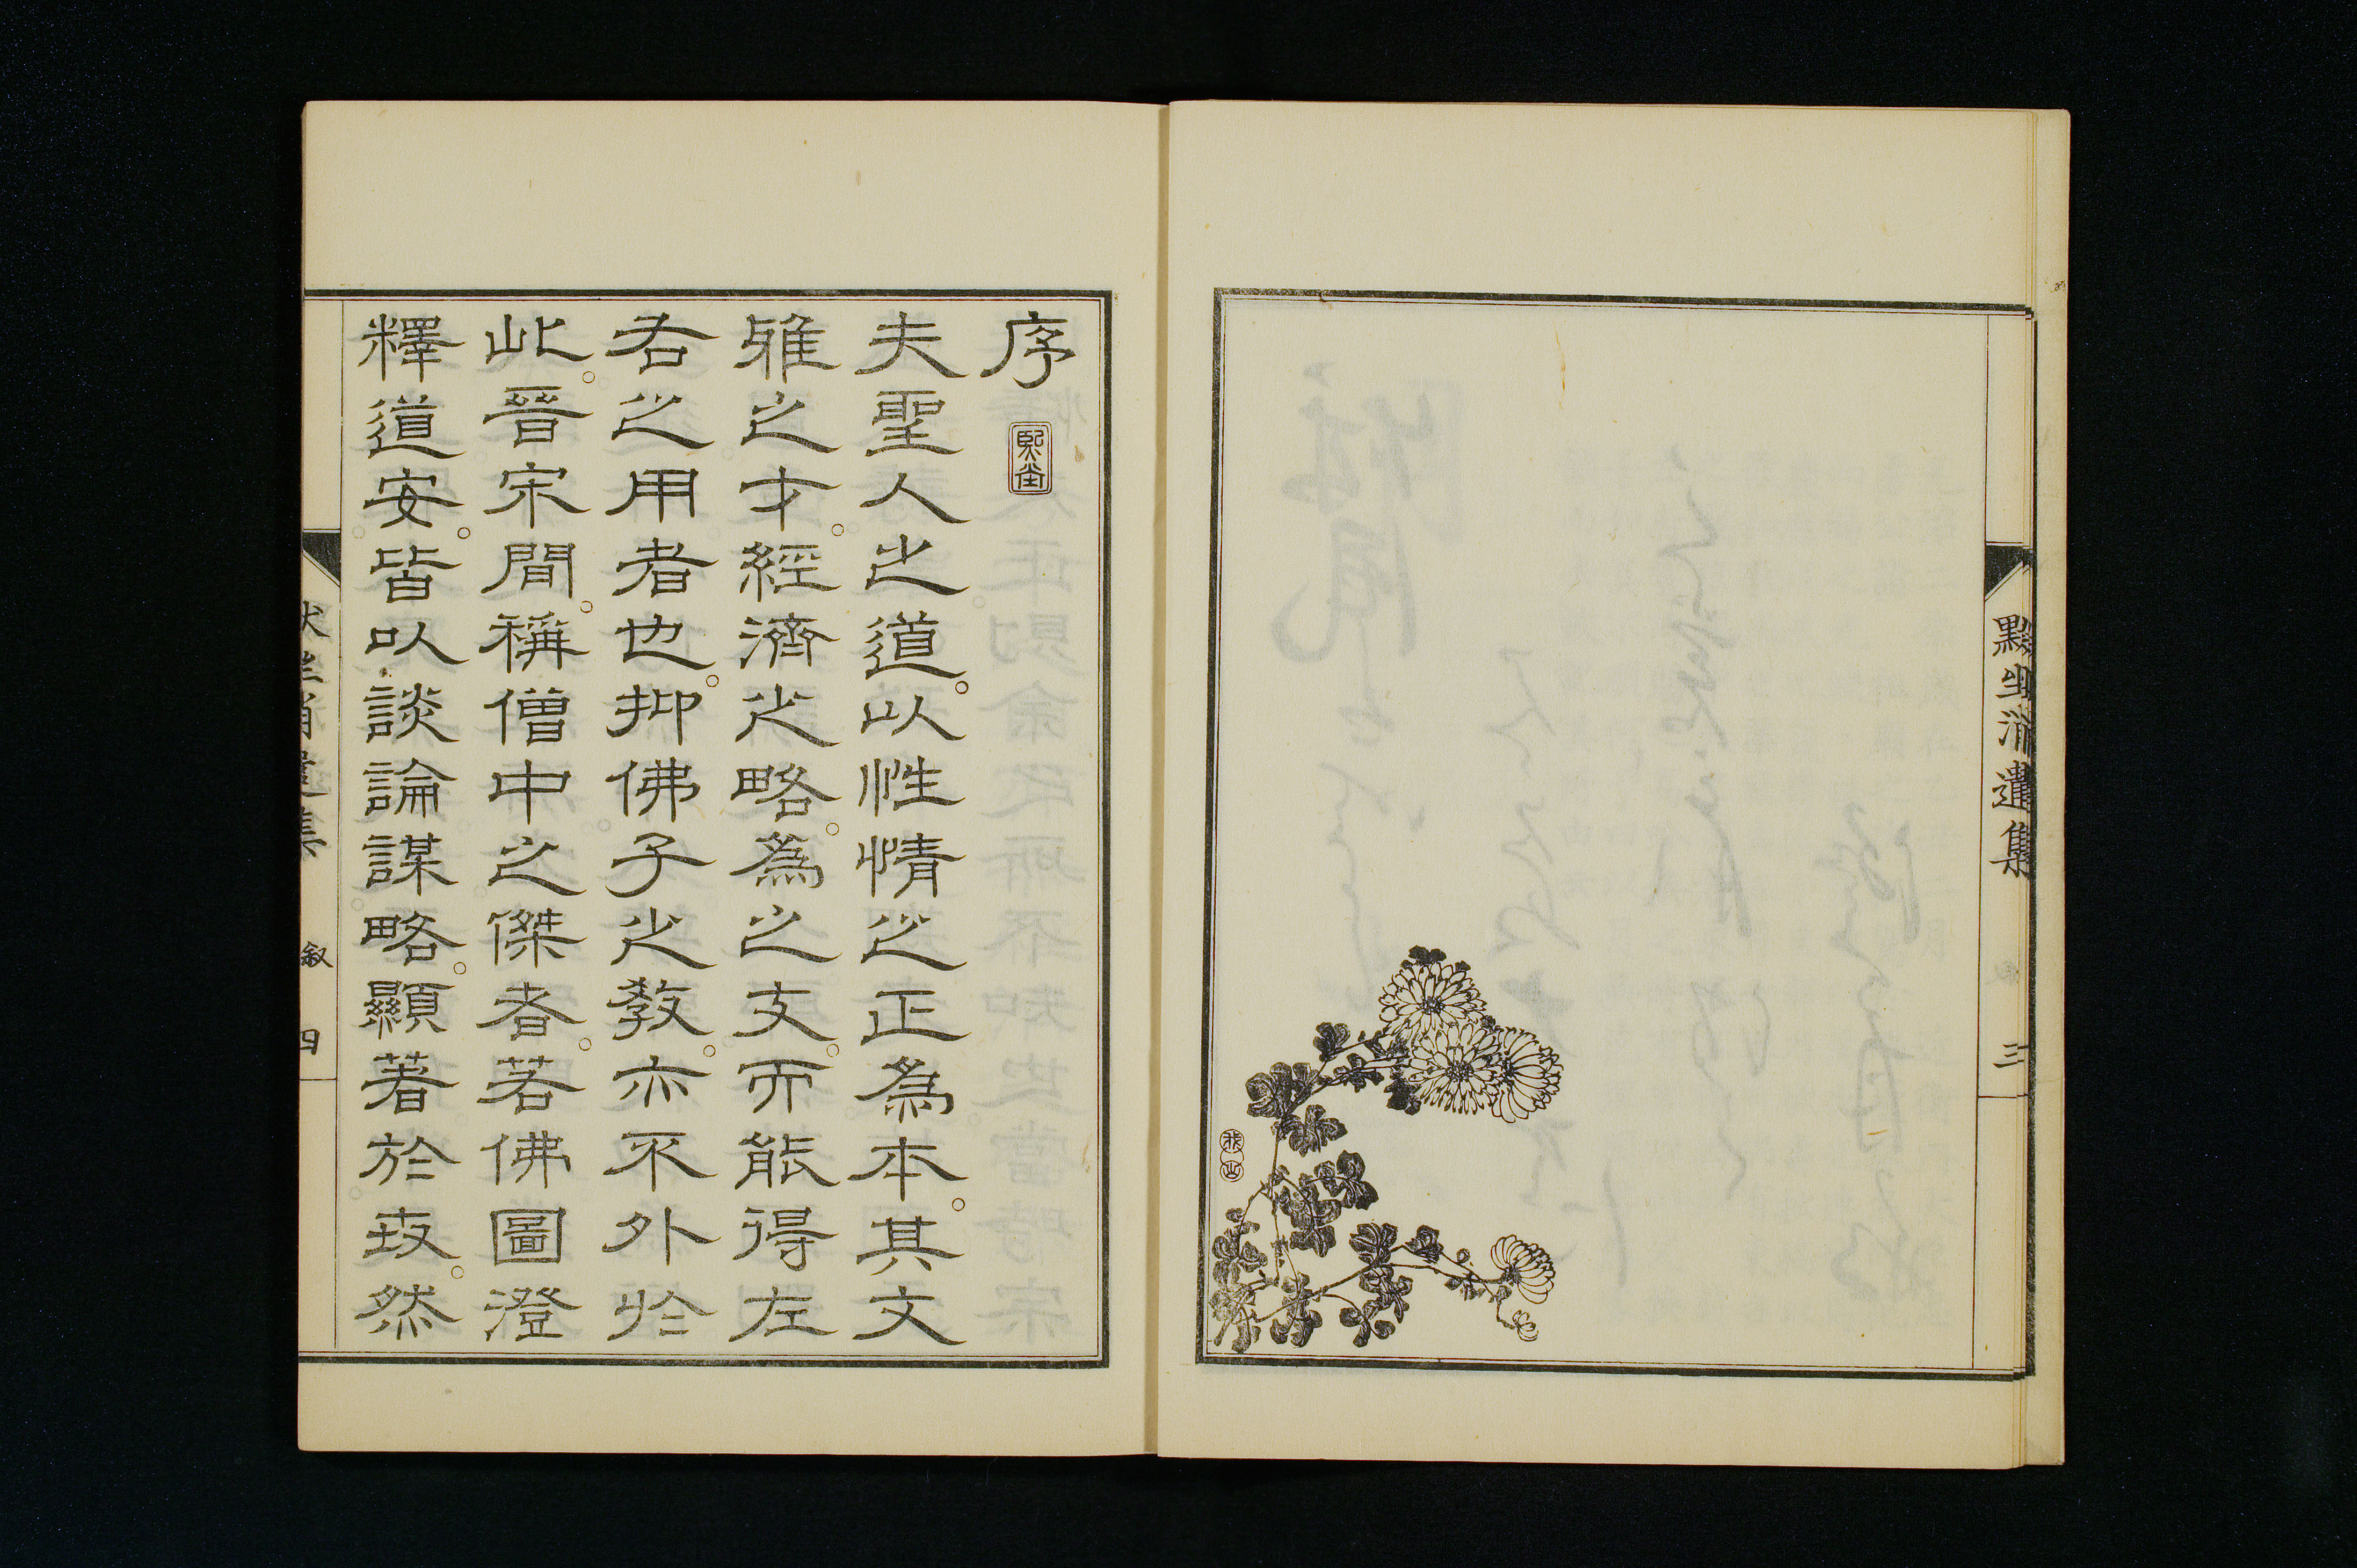 默坐消遣集 三
序
夫聖人之道。以性情之正為本。其文
雅之才。經濟之略。為之支。而能得左
右之用者也。抑佛子之教。亦不外於
此。晉宋間。稱僧中之傑者。若佛圖澄
釋道安。皆以談論謀略。顯著於 。然
叙 四